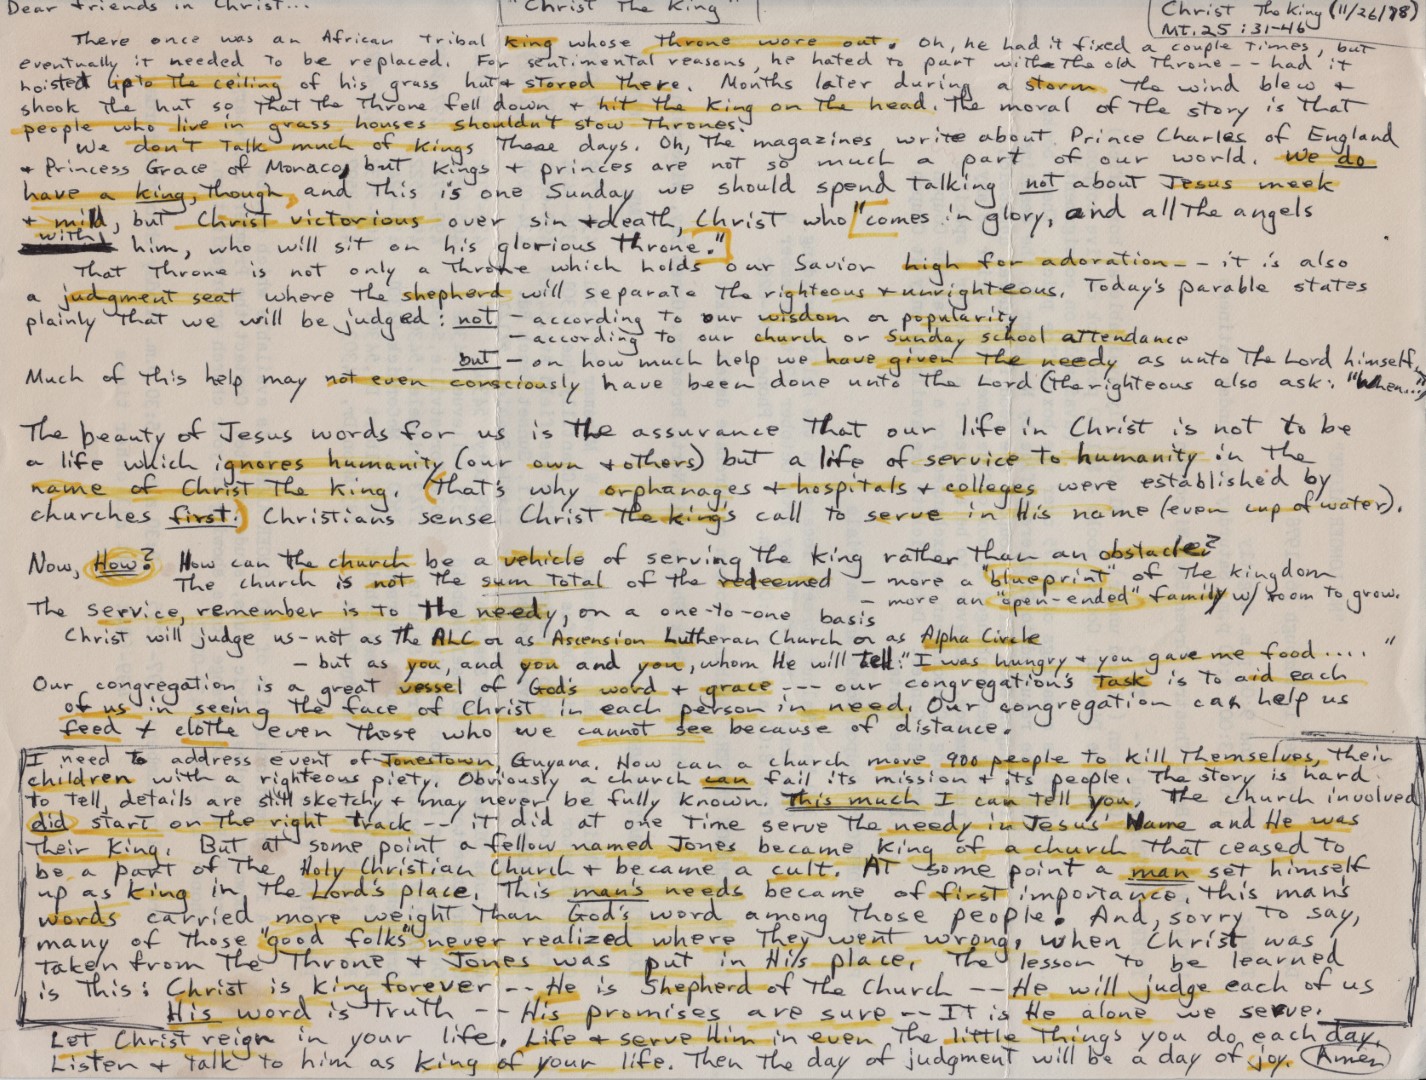 Dear friends in Christ... "Christ The King" Christ The King (11/26/78)
MT. 25:31-46
There once was an African tribal king whose throne wore out. Oh, he had it fixed a couple times, but
eventually it needed to be replaced. For sentimental reasons, he hated to part with the old Throne -- had it
hoisted up to the ceiling of his grass hut & stored there. Months later during a storm the wind blew &
shook the hut so that the Throne fell down & hit the King on the head. The moral of the story is that
people who live in grass houses shouldn't stow thrones.
We don't talk much of kings these days. Oh, the magazines write about Prince Charles of England
& Princess Grace of Monaco, but kings & princes are not so much a part of our world. We do
have a king, though, and this is one Sunday we should spend talking not about Jesus meek
& mild, but Christ victorious over sin & death, Christ who "comes in glory, and all the angels
with him, who will sit on his glorious throne."
That throne is not only a throne which holds our Savior high for adoration -- it is also
a judgment seat where the shepherd will separate the righteous & unrighteous. Today's parable states
plainly that we will be judged: not - according to our wisdom or popularity
- according to our church or Sunday school attendance
but - on how much help we have given the needy as unto the Lord himself.
Much of this help may not even consciously have been done unto the Lord (the righteous also ask: "When..."
The beauty of Jesus words for us is the assurance that our life in Christ is not to be
a life which ignores humanity (our own & others) but a life of service to humanity in the
name of Christ the King. (That's why orphanages & hospitals & colleges were established by
churches first.) Christians sense Christ the king's call to serve in His name (even cup of water).
Now, How? How can the church be a vehicle of serving the King rather than an obstacle?
The church is not the sum total of the redeemed - more a "blueprint" of the kingdom
- more an "open-ended" family w/ room to grow.
The service, remember is to the needy, on a one-to-one basis
Christ will judge us - not as the ALC or as Ascension Lutheran Church or as Alpha Circle
- but as you, and you and you, whom He will tell: "I was hungry & you gave me food .... "
Our congregation is a great vessel of God's word & grace --- our congregation's task is to aid each
of us in seeing the face of Christ in each person in need. Our congregation can help us
feed & clothe even those who we cannot see because of distance.
I need to address event of Jonestown, Guyana. How can a church move 900 people to kill themselves, their
children with a righteous piety. Obviously a church can fail its mission & its people. The story is hard
to tell, details are still sketchy & may never be fully known. This much I can tell you. The church involved
did start on the right track -- it did at one time serve the needy in Jesus' Name and He was
their King. But at some point a fellow named Jones became King of a church that ceased to
be a part of the Holy Christian Church & became a cult. At some point a man set himself
up as King in the Lord's place. This man's needs became of first importance, this man's
words carried more weight than God's word among those people. And, sorry to say,
many of those "good folks" never realized where they went wrong, when Christ was
taken from the Throne & Jones was put in His place. The lesson to be learned
is this: Christ is King forever -- He is Shepherd of the Church -- He will judge each of us
His word is truth -- His promises are sure -- It is He alone we serve.
Let Christ reign in your life. Life & serve Him in even the little things you do each day.
Listen & talk to him as King of your life. Then the day of judgment will be a day of joy. Amen